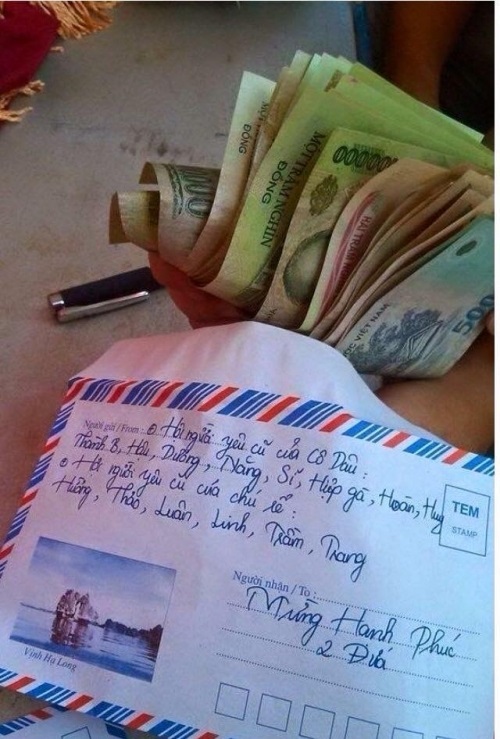 MỘT TRĂM NGHÌN
ĐỒNG
ĐỒNG
HAI TRĂM
VIỆT NAM
500
Người gửi / From : Hội người yêu cũ của Cô Dâu :
Thành B, Hậu, Dưỡng, Năng, Sĩ, Hiệp gà, Hoàn, Huy
Hội người yêu cũ của chú rể :
Hường, Thảo, Luân, Linh, Trầm, Trang
TEM
STAMP
Người nhận / To :
Mừng Hạnh Phúc
2 Đứa
Vịnh Hạ Long